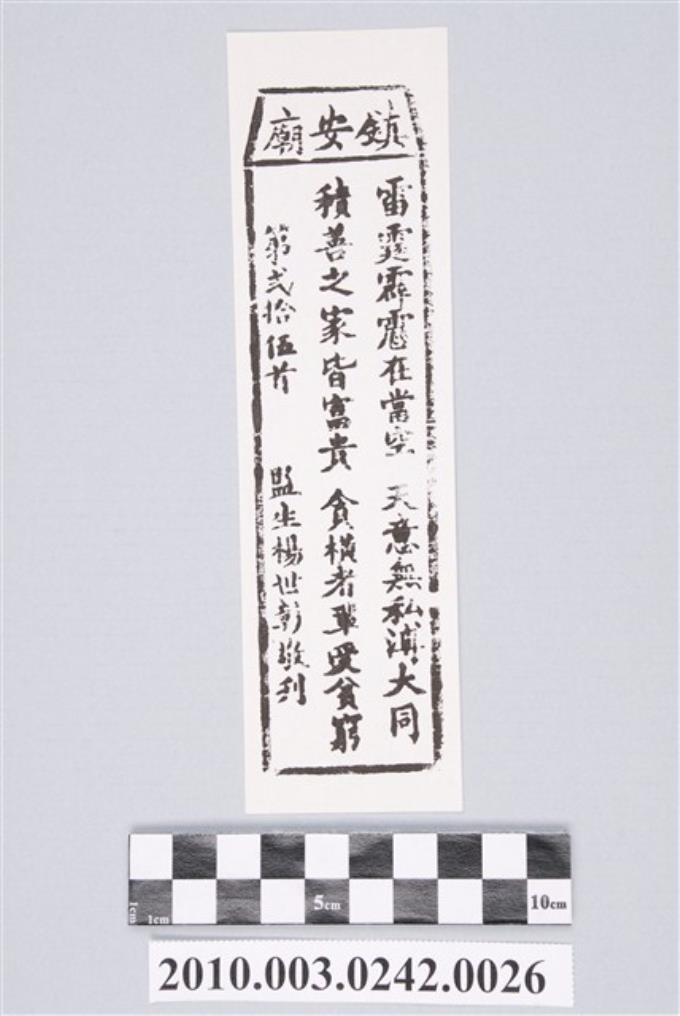 鎮安廟
雷霆霹靂在當空 天意無私溥大同
積善之家皆富貴 貪橫者輩受貧窮
第弍拾伍首 監生楊世彰敬刊
1cm 1cm 5cm 10cm
2010.003.0242.0026